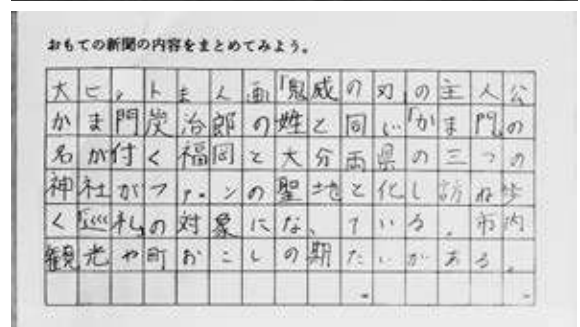 おもての新聞の内容をまとめてみよう。
大ヒットまんが「鬼威の刃」の主人公
かま門炭治郎の姓と同じ「かま門」の
名が付く福岡と大分両県の三つの
神社がファンの聖地と化し訪ね歩
く「巡礼」の対象になっている。市内
観光や町おこしの期たいがある。